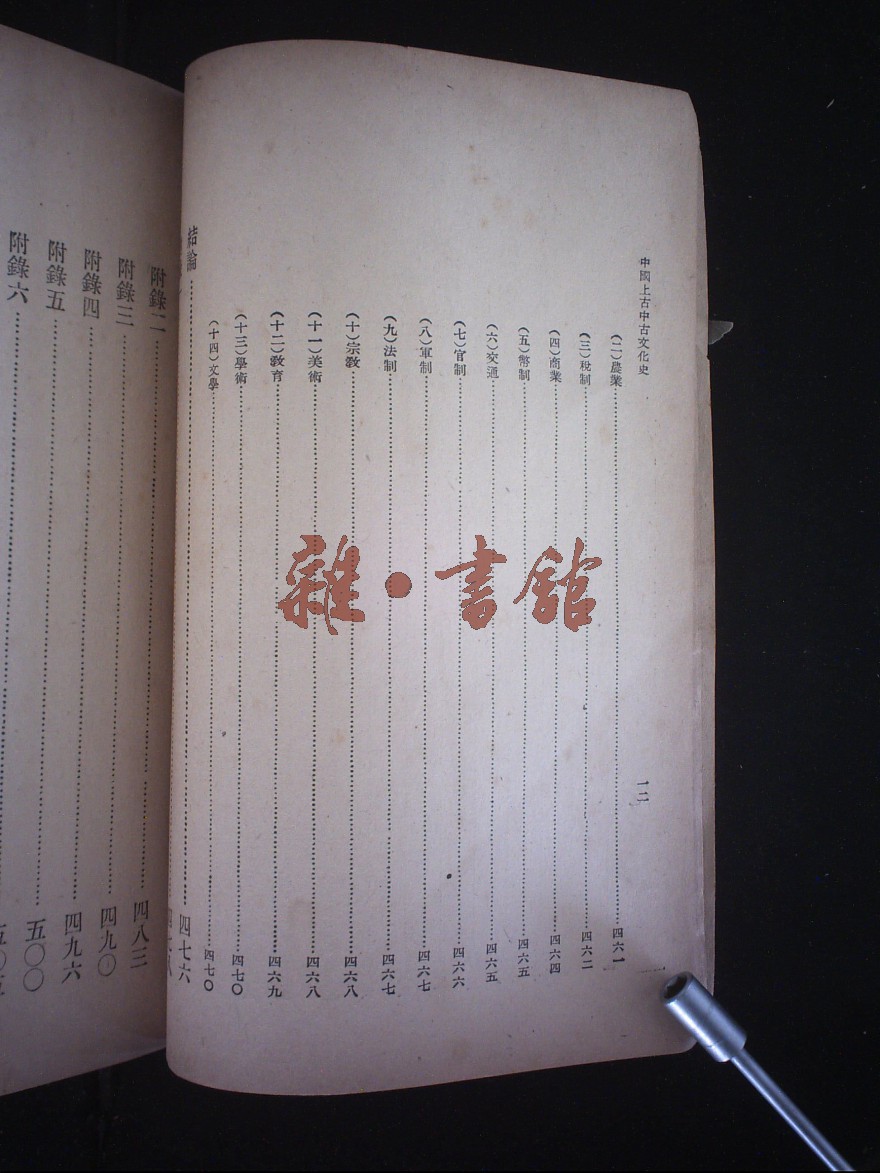 中國上古中古文化史
一二
（二）農業 四六一
（三）稅制 四六二
（四）商業 四六四
（五）幣制 四六五
（六）交通 四六五
（七）官制 四六六
（八）軍制 四六七
（九）法制 四六七
（十）宗教 四六八
（十一）美術 四六八
（十二）教育 四六九
（十三）學術 四七〇
（十四）文學 四七〇
結論 四七六
附錄二 四八三
附錄三 四九〇
附錄四 四九六
附錄五 五〇〇
附錄六
雜·書館